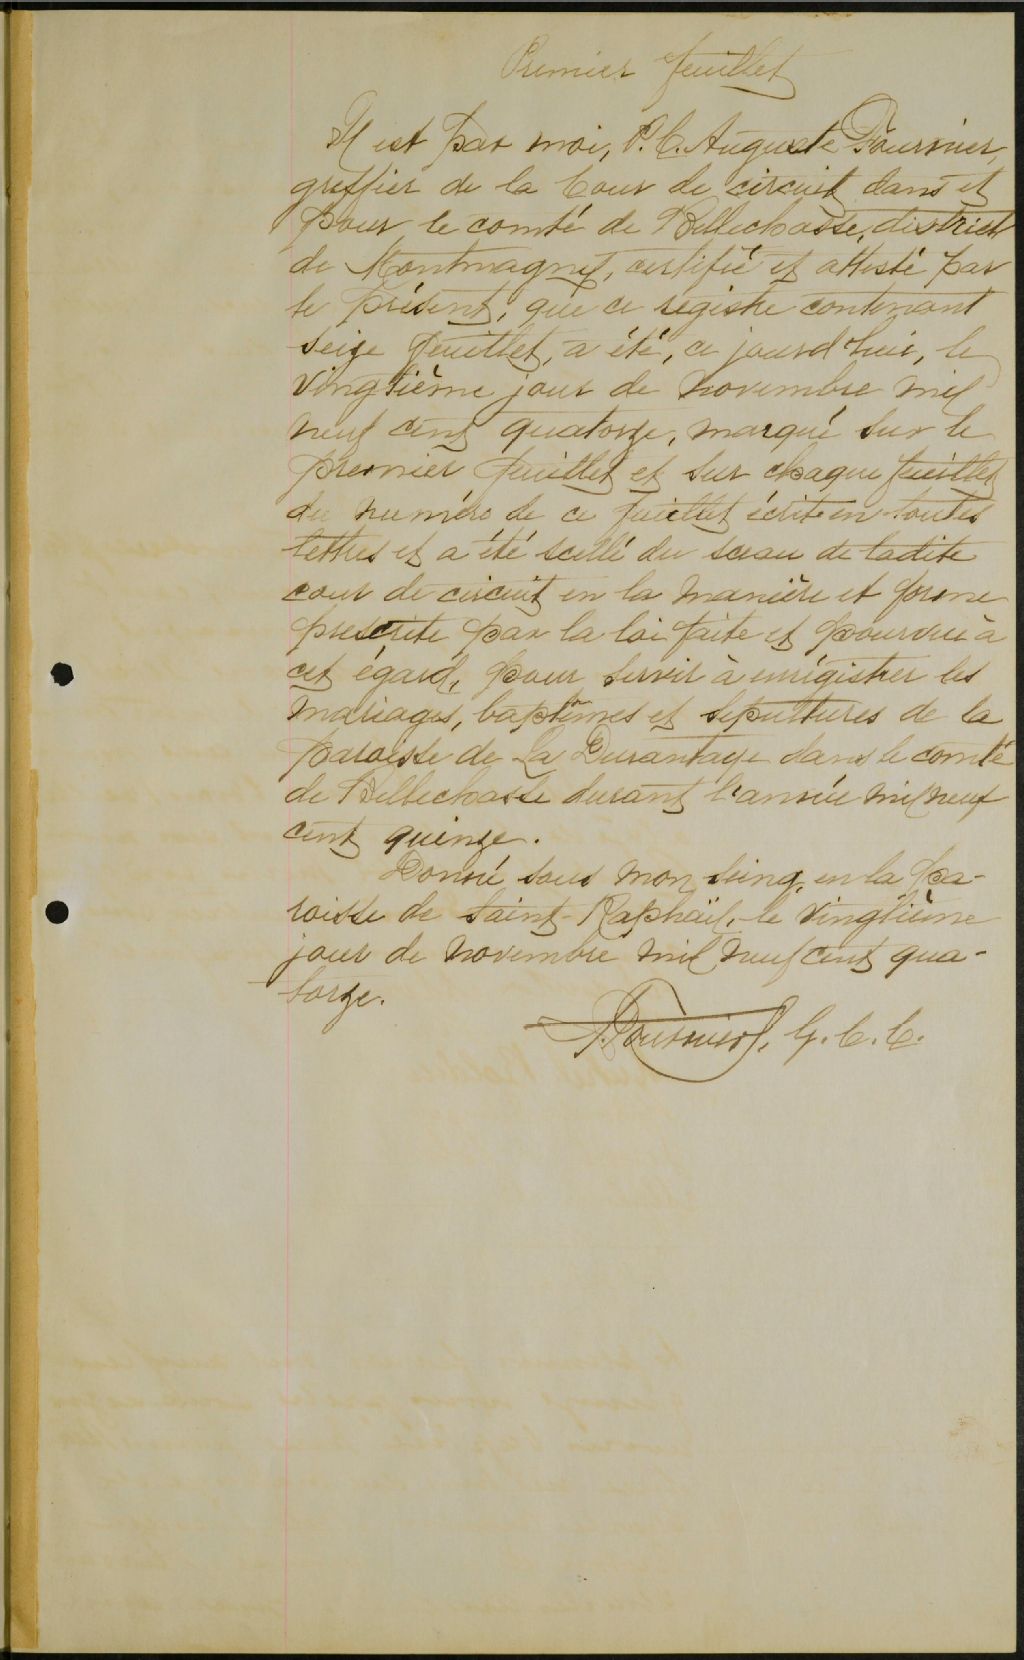 Premier feuillet
Il est par moi, P. C. Auguste Fournier,
greffier de la Cour de circuit dans et
pour le comté de Bellechasse, district
de Montmagny, certifié et attesté par
le présent, que ce registre contenant
seize feuillet, a été, ce jourd'hui, le
vingtième jour de novembre mil
neuf cent quatorze, marqué sur le
premier feuillet et sur chaque feuillet
du numéro de ce feuillet écrit en toutes
lettres et a été scellé du sceau de ladite
cour de circuit en la manière et forme
prescrite par la loi faite et pourvue à
cet égard, pour servir à enrégistrer les
mariages, baptêmes et sépultures de la
paroisse de La Durantaye dans le comté
de Bellechasse durant l'année mil neuf
cent quinze.
Donné sous mon seing, en la pa-
roisse de Saint-Raphaël, le vingtième
jour de novembre mil neuf cent qua-
torze.
Fournier, G. C. C.